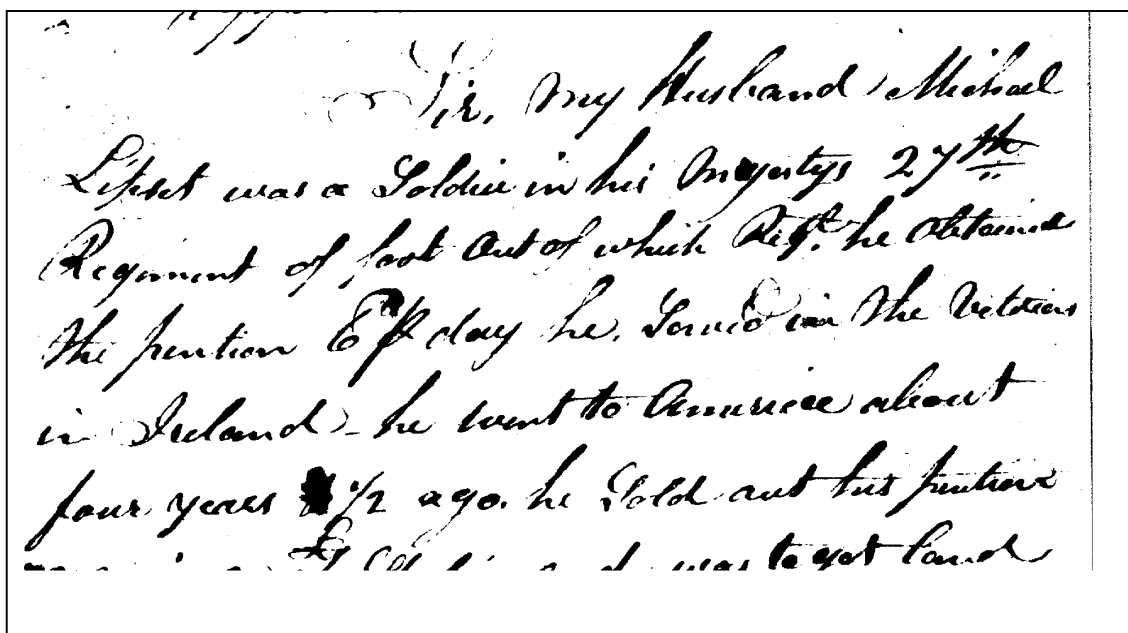 Sir, My Husband Michael
Lipset was a Soldier in his Majestys 27th
Regiment of foot Out of which Regt. he Obtained
the pention 6 P day he. Served in the Vetrins
in Ireland - he went to America about
four years 1/2 ago. he Sold out his pention
was to get land